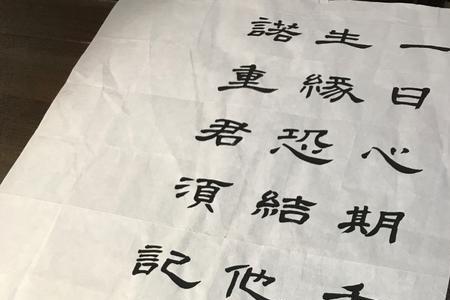 一日心期千
生緣恐結他
諾重君須記